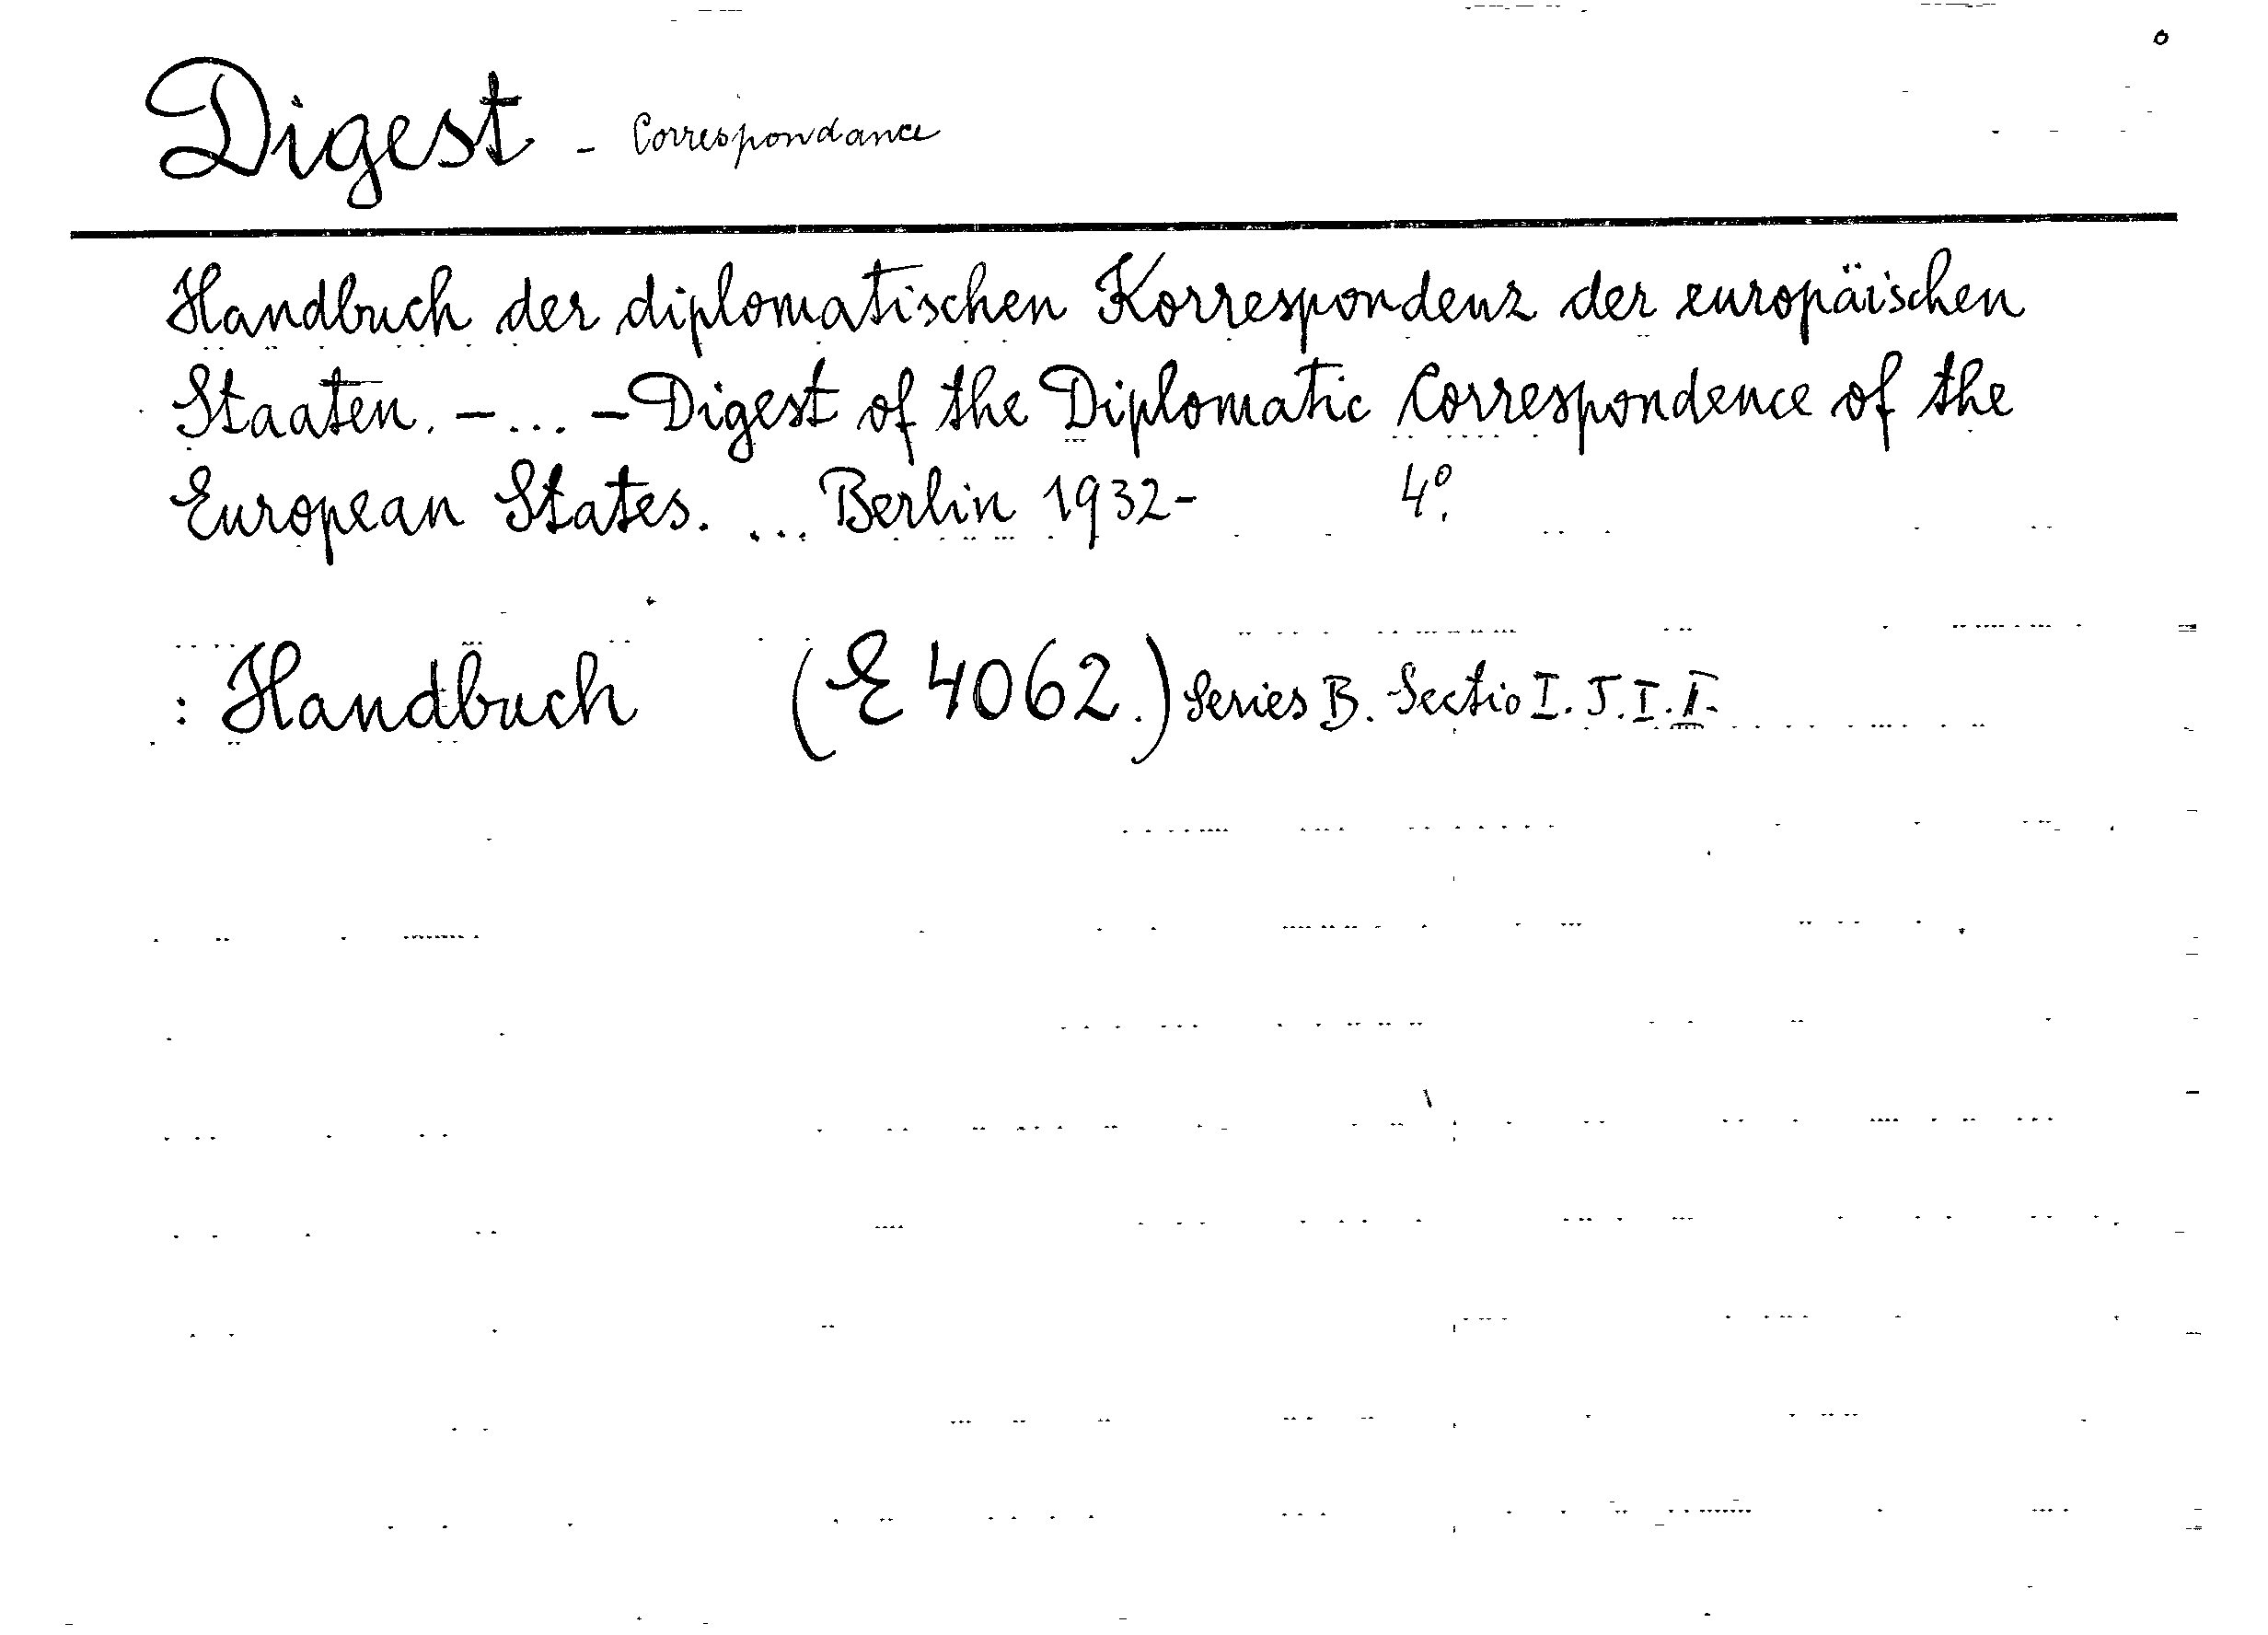 Digest - Correspondance
Handbuch der diplomatischen Korrespondenz der europäischen
Staaten. - ... - Digest of the Diplomatic Correspondence of the
European States. ... Berlin 1932- 4°.
: Handbuch (E 4062.) Series B. Sectio I. T. I. I.